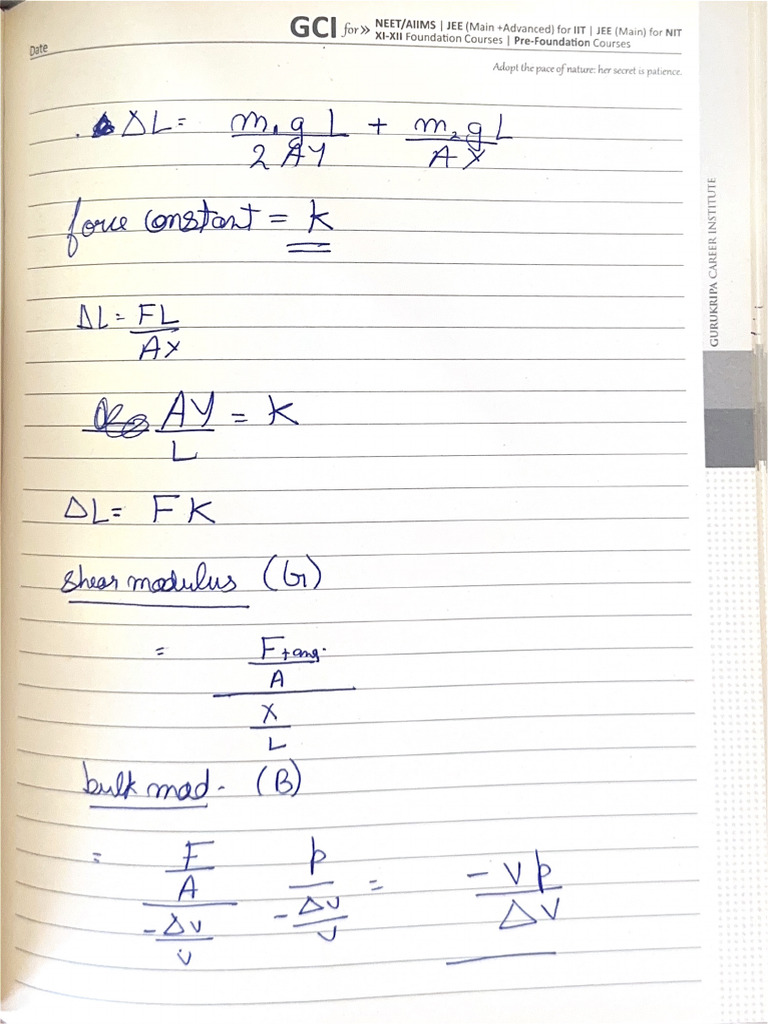 GCI for» NEET/AIIMS | JEE (Main +Advanced) for IIT | JEE (Main) for NIT
XI-XII Foundation Courses | Pre-Foundation Courses
Date
Adopt the pace of nature: her secret is patience.
GURUKRIPA CAREER INSTITUTE
. ΔL = m₁gL/2AY + m₂gL/AY
force constant = k
ΔL = FL/AY
AY/L = K
ΔL = FK
shear modulus (G)
= (F tang./A)/(x/L)
bulk mod. (B)
= (F/A)/(-Δv/v) p/(-Δv/v) = -vp/Δv